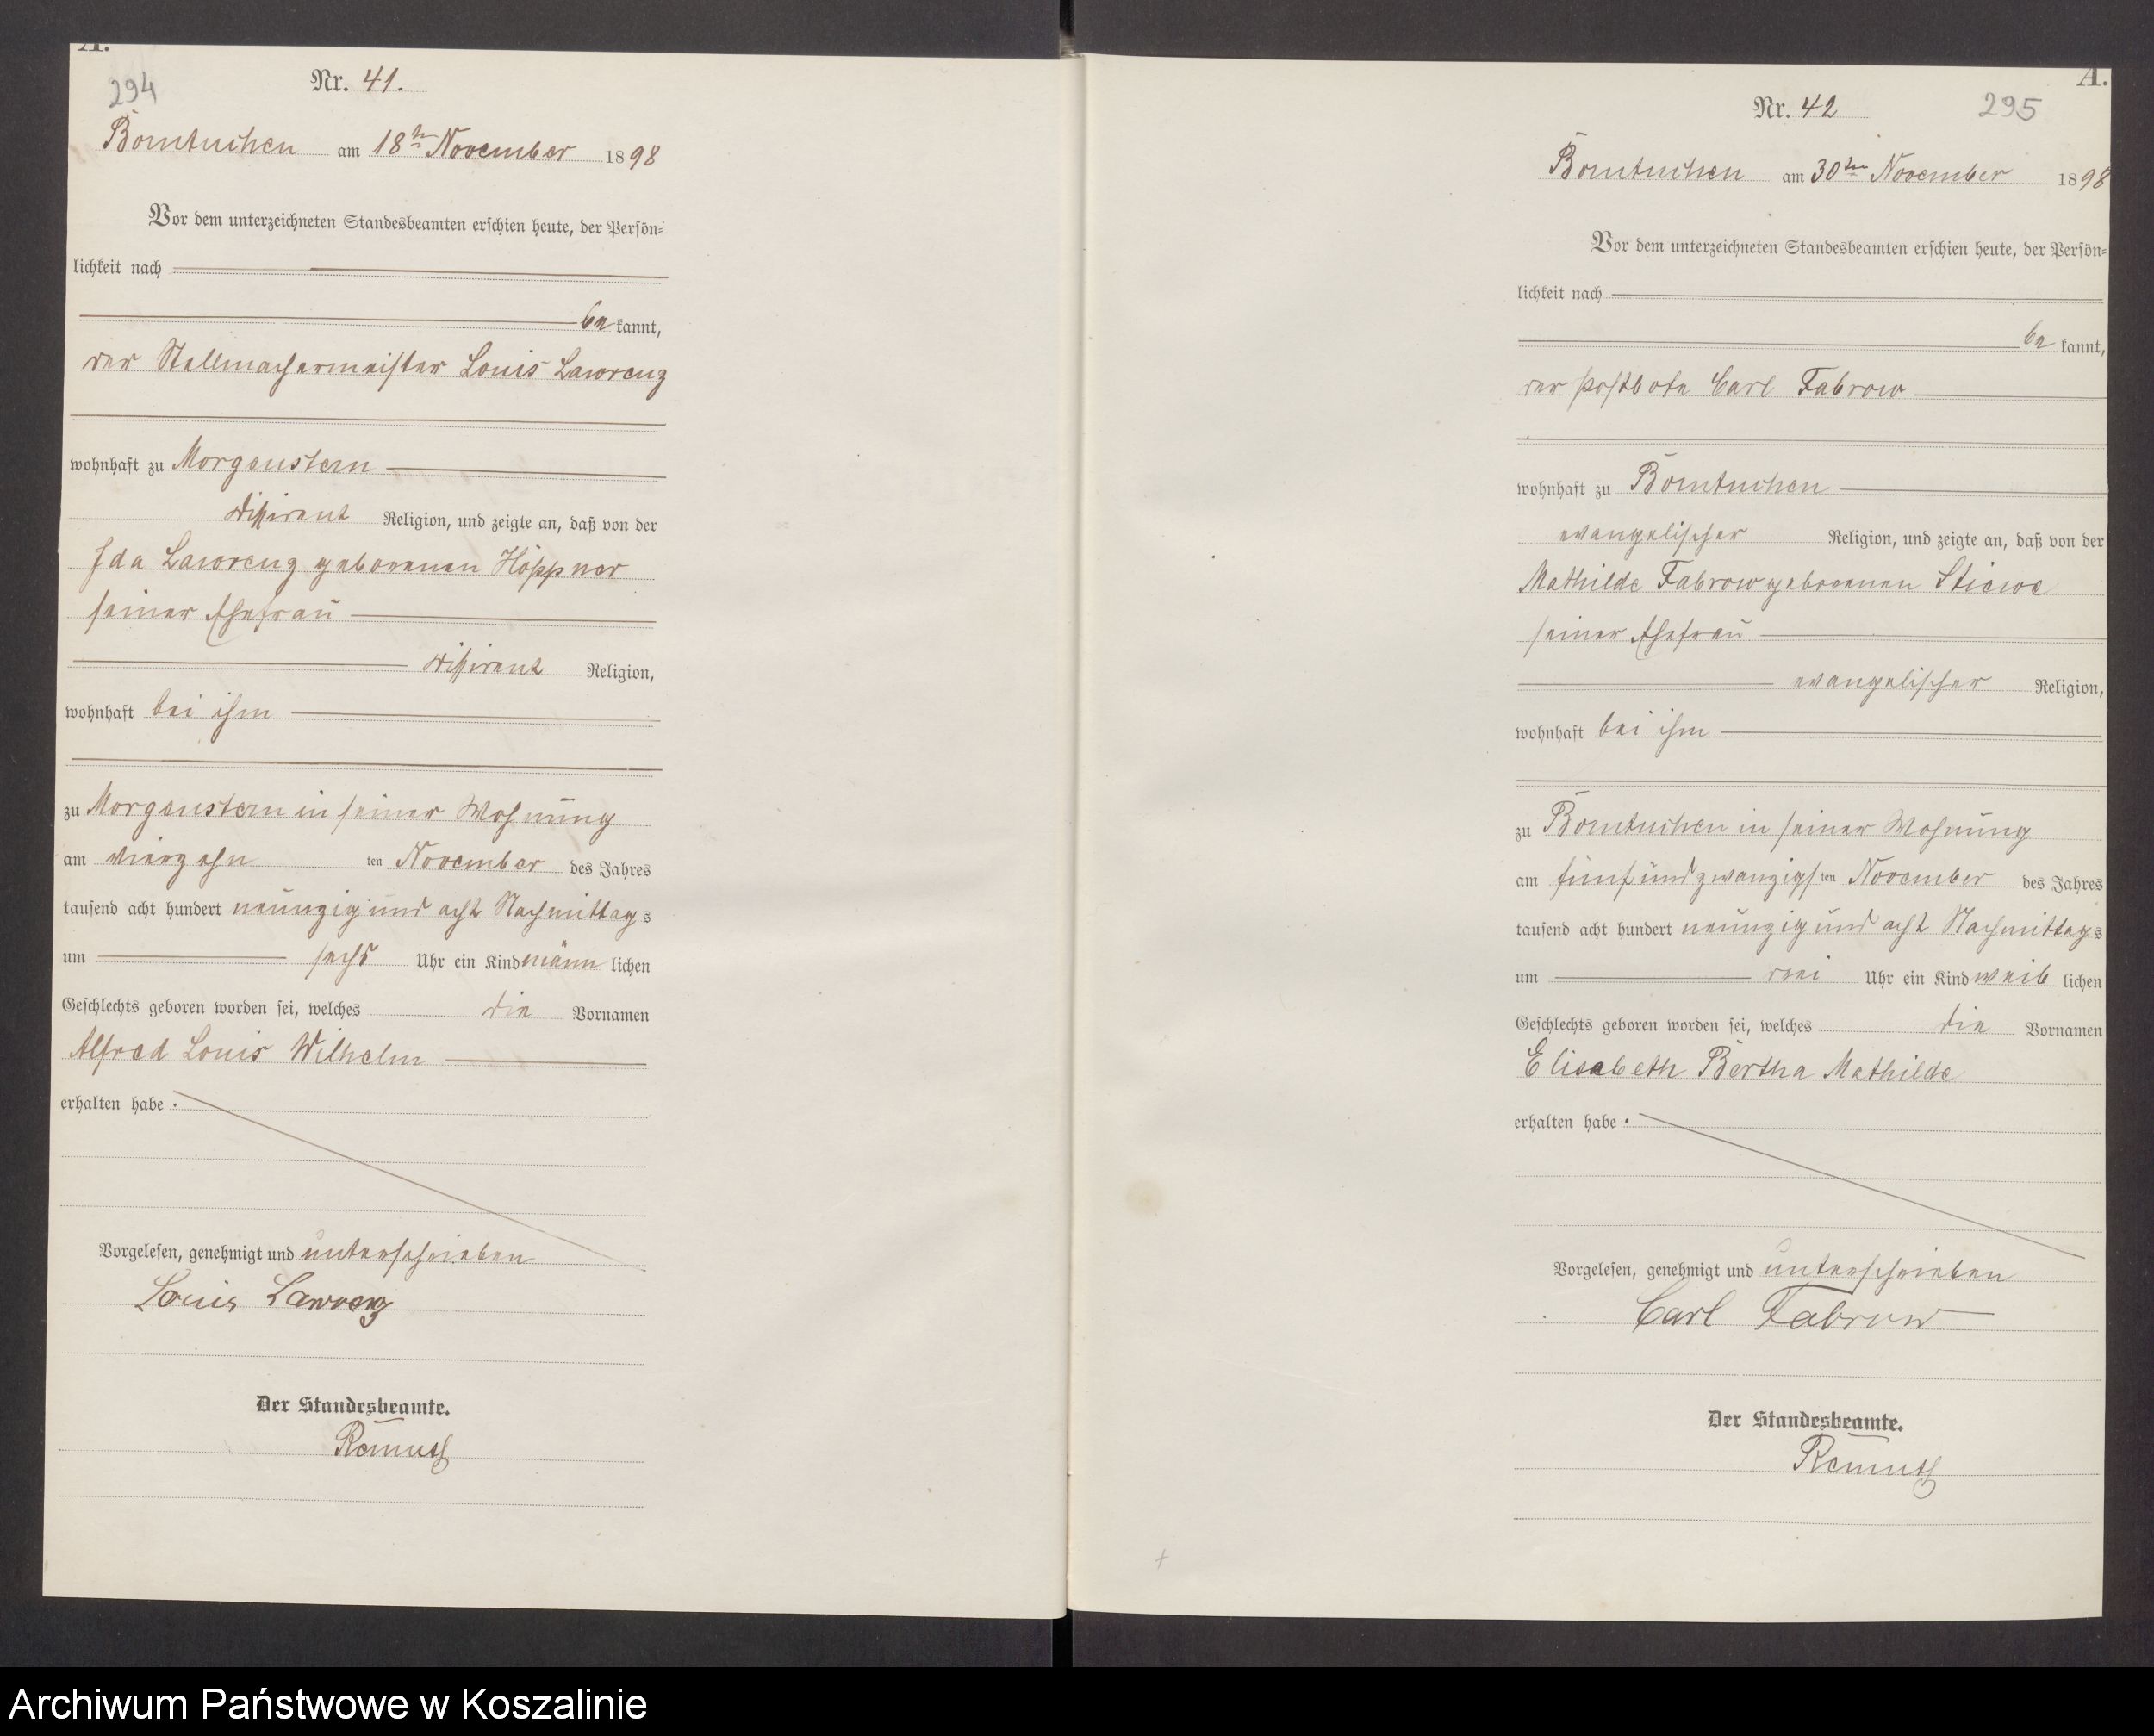 A.
294
Nr. 41.
Borntuchen am 18ten November 1898
Vor dem unterzeichneten Standesbeamten erschien heute, der Persön-
lichkeit nach
bekannt,
der Stellmachermeister Louis Lawrenz
wohnhaft zu Morgenstern
dissident Religion, und zeigte an, daß von der
Ida Lawrenz geborenen Höppner
seiner Ehefrau
dissident Religion,
wohnhaft bei ihm
zu Morgenstern in seiner Wohnung
am vierzehn ten November des Jahres
tausend acht hundert neunzig und acht Nachmittags
um sechs Uhr ein Kind männlichen
Geschlechts geboren worden sei, welches die Vornamen
Alfred Louis Wilhelm
erhalten habe.
Vorgelesen, genehmigt und unterschrieben
Louis Lawrenz
Der Standesbeamte.
A.
295
Nr. 42
Borntuchen am 30ten November 1898
Vor dem unterzeichneten Standesbeamten erschien heute, der Persön-
lichkeit nach
bekannt,
der Postbote Carl Fabrow
wohnhaft zu Borntuchen
evangelischer Religion, und zeigte an, daß von der
Mathilde Fabrow geborenen Stiewe
seiner Ehefrau
evangelischer Religion,
wohnhaft bei ihm
zu Borntuchen in seiner Wohnung
am fünfundzwanzigsten November des Jahres
tausend acht hundert neunzig und acht Nachmittags
um drei Uhr ein Kind weiblichen
Geschlechts geboren worden sei, welches die Vornamen
Elisabeth Bertha Mathilde
erhalten habe.
Vorgelesen, genehmigt und unterschrieben
Carl Fabrow
Der Standesbeamte.
Archiwum Państwowe w Koszalinie